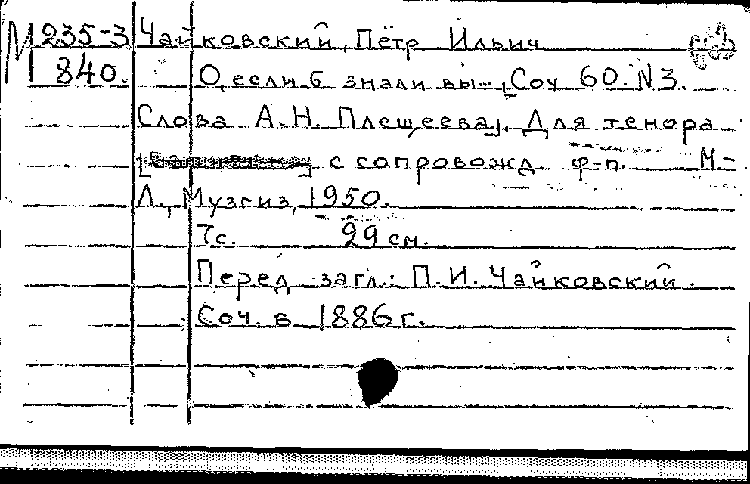 М 235-3 Чайковский, Пётр Ильич
840. О, если б знали вы... [Соч. 60. №3.
Слова А.Н. Плещеева]. Для тенора
с сопровожд. ф-п. М.-
Л., Музгиз, 1950.
7с. 29 см.
Перед загл.: П.И. Чайковский.
Соч. в 1886 г.